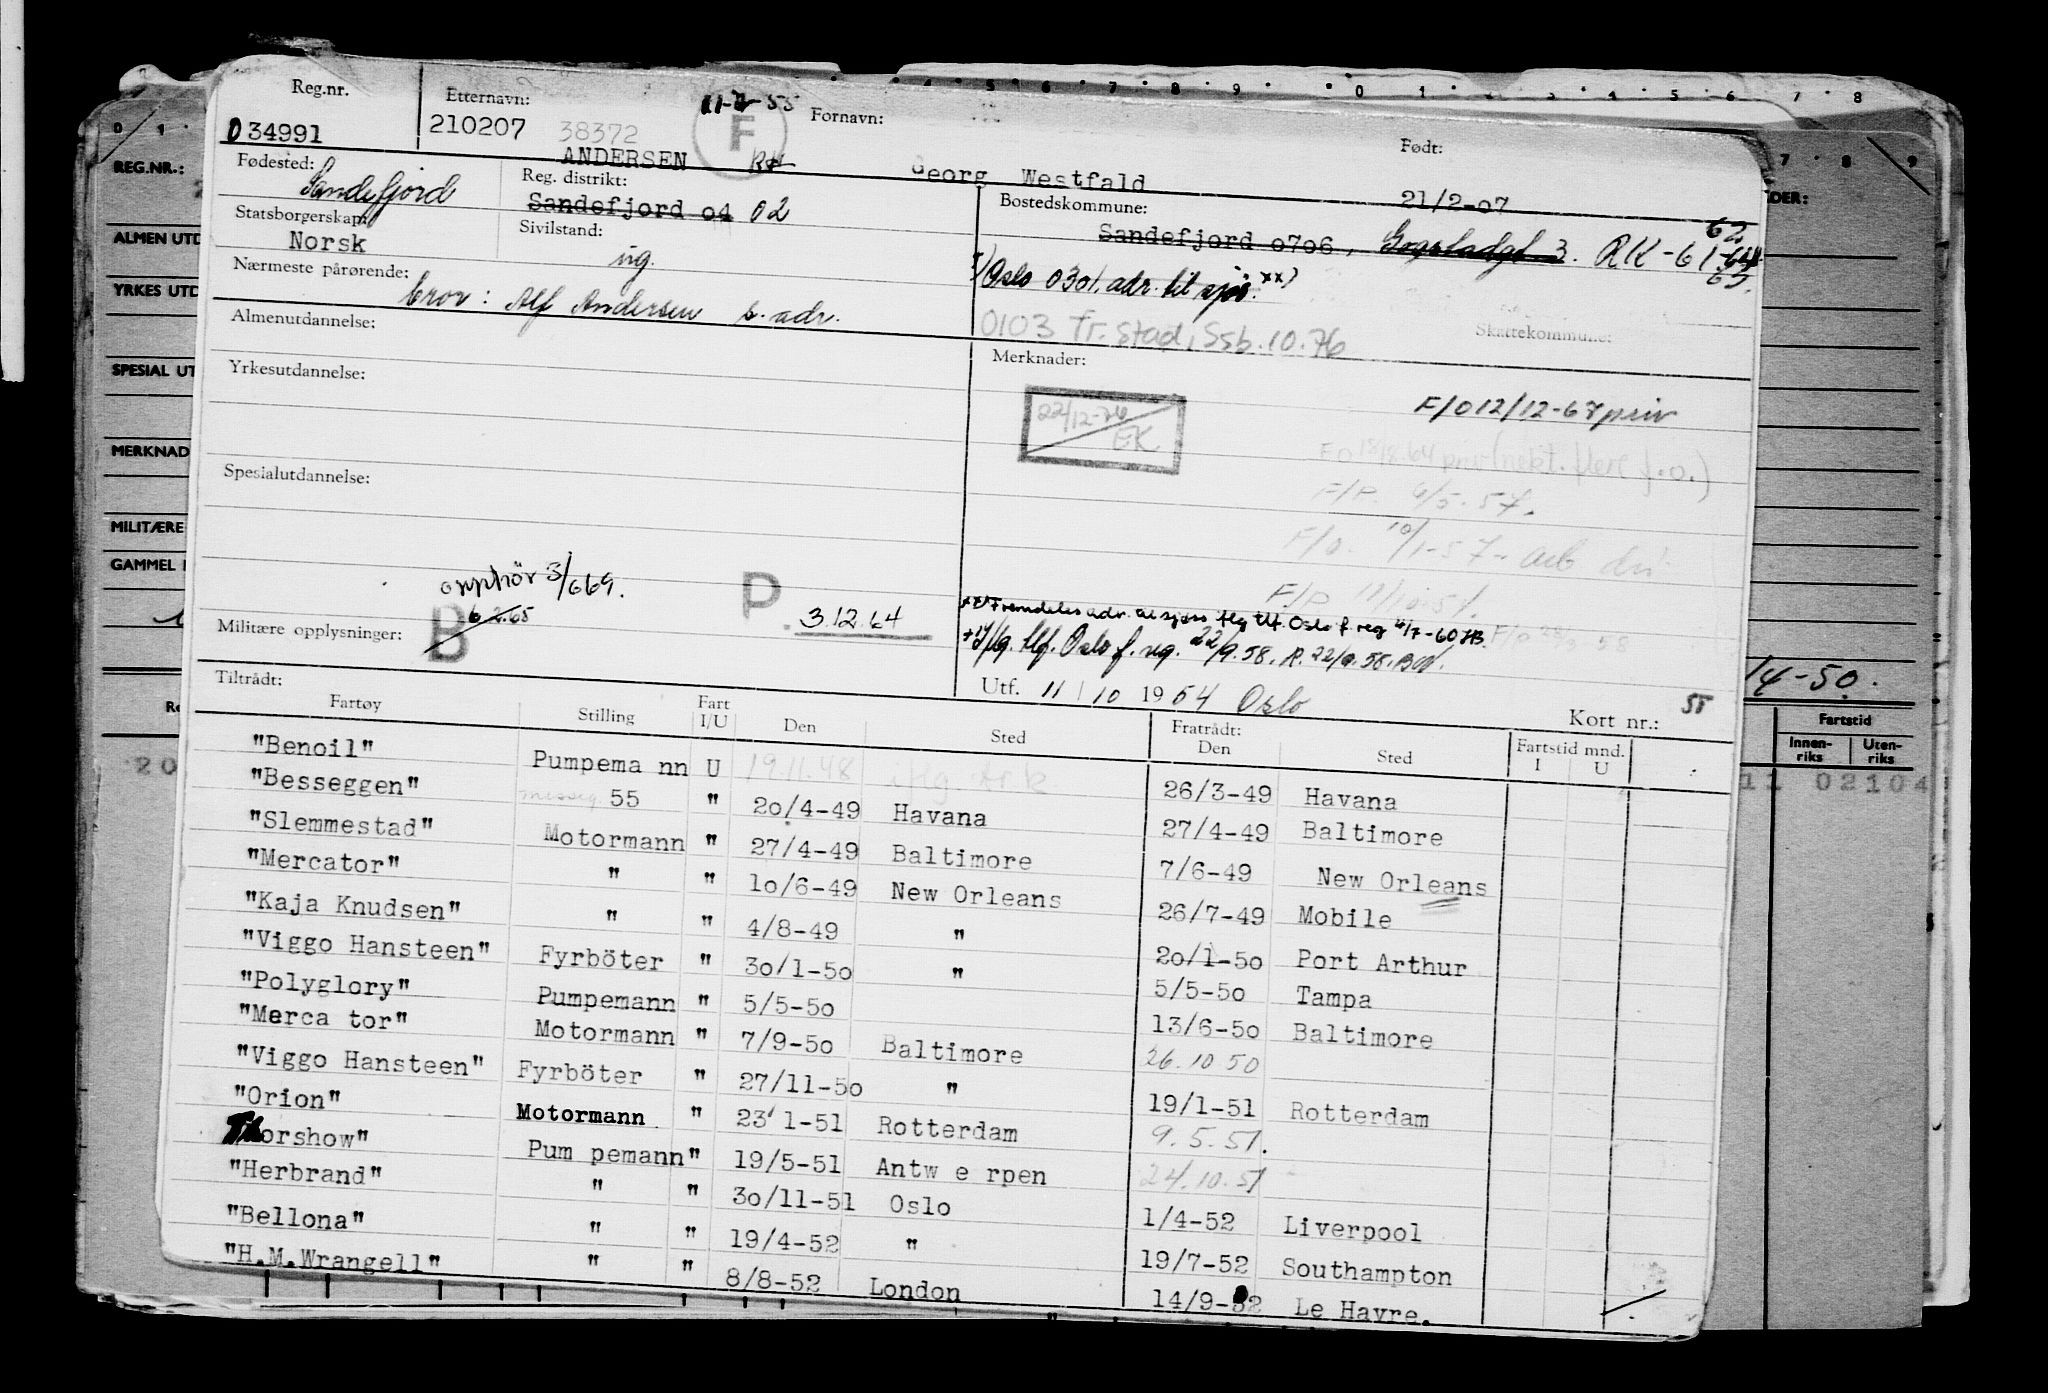 Reg.nr. Etternavn: 11-7-55 Fornavn: Født:
034991 210207 38372 F
ANDERSEN Georg Westfald 21/2-07
Fødested: Sandefjord Reg. distrikt: Sandefjord 04 02 Bostedskommune: Sandefjord 0706, 3. RK-61-64 62 63
Statsborgerskap: Norsk Sivilstand: ug. Oslo 0301. adr. til sjøs. xx)
Nærmeste pårørende: bror: Alf Andersen s. adr. 0103 Fr.stad, Ssb. 10.76
Almenutdannelse: Skattekommune:
Yrkesutdannelse: Merknader:
22/12-76 EK
F/O 12/12-67 priv
FO 18/8.64 priv (nekt. flere f.o.)
F/P. 6/5-57.
F/O. 10/1-57-
Spesialutdannelse:
F/P
opphör 3/669.
Militære opplysninger: B 6.2.65 P. 3.12.64
xx) Fremdeles adr. til sjøs iflg tlf. Oslo f. reg 4/7-60
iflg. tlf. Oslo f. reg. 22/9.58. R. 22/9.58.
Utf. 11/10 1954 Oslo Kort nr.: 55
Tiltrådt:
Fartøy Stilling Fart I/U Den Sted Fratrådt: Den Sted Fartstid mnd. I U
"Benoil" Pumpema nn U 19.11.48 iflg 26/3-49 Havana
"Besseggen" messeg. 55 " 20/4-49 Havana 27/4-49 Baltimore
"Slemmestad" Motormann " 27/4-49 Baltimore 7/6-49 New Orleans
"Mercator" " " 10/6-49 New Orleans 26/7-49 Mobile
"Kaja Knudsen" " " 4/8-49 " 20/1-50 Port Arthur
"Viggo Hansteen" Fyrböter " 30/1-50 " 5/5-50 Tampa
"Polyglory" Pumpemann " 5/5-50 13/6-50 Baltimore
"Merca tor" Motormann " 7/9-50 Baltimore 26.10 50
"Viggo Hansteen" Fyrböter " 27/11-50 " 19/1-51 Rotterdam
"Orion" Motormann " 23/1-51 Rotterdam 9.5.51.
Thorshow" Pum pemann " 19/5-51 Antw e rpen 24.10.51
"Herbrand" " " 30/11-51 Oslo 1/4-52 Liverpool
"Bellona" " " 19/4-52 " 19/7-52 Southampton
"H.M.Wrangell" " " 8/8-52 London 14/9-52 Le Havre.
REG.NR.:
ALMEN UTD
YRKES UTD
SPESIAL UT
MERKNAD
MILITÆRE
GAMMEL
/4-50.
Fartstid
Innenriks Utenriks
20 11 02104